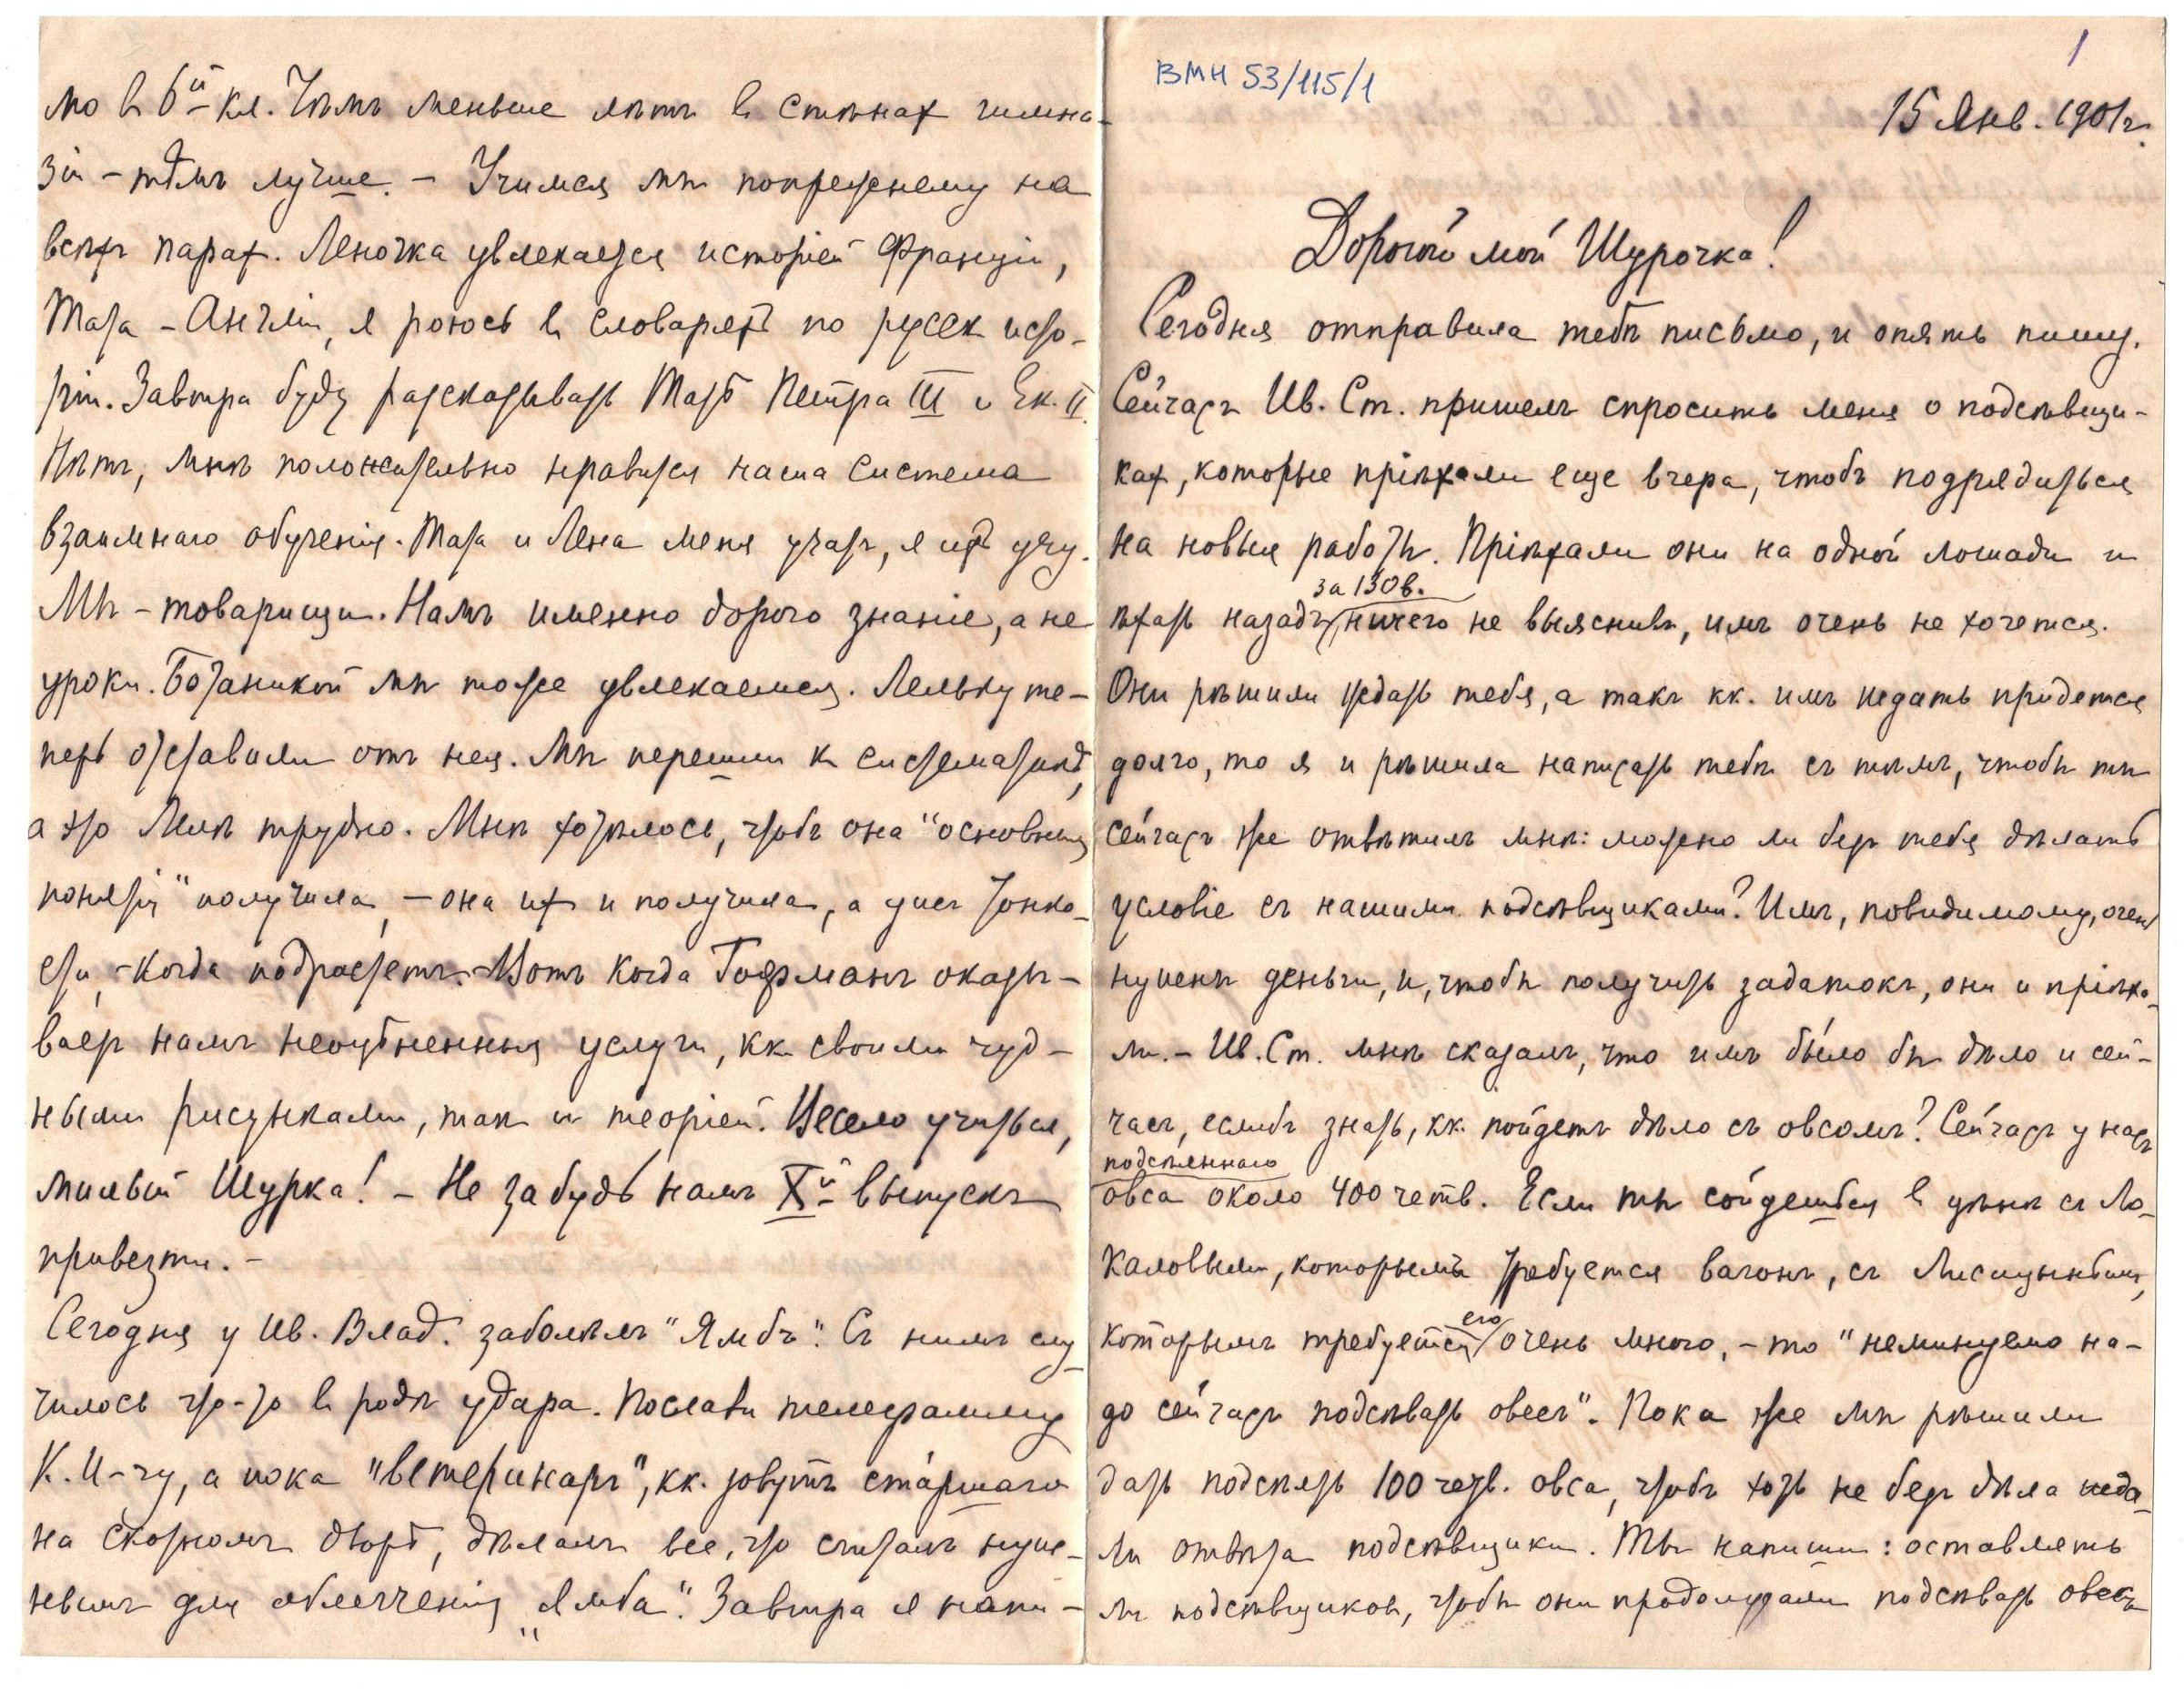 ВМН 53/115/1
1
15 Янв. 1901 г.
Дорогой мой Шурочка!
Сегодня отправила тебѣ письмо, и опять пишу.
Сейчасъ Ив. Ст. пришелъ спросить меня о подсѣвщи-
кахъ, которые пріѣхали еще вчера, чтобъ подрядиться
на новыя работы. Пріѣхали они на одной лошади и
за 130 в.
ѣхать назадъ, ничего не выяснивъ, имъ очень не хочется.
Они рѣшили ждать тебя, а такъ кк. имъ ждать придется
долго, то я и рѣшила написать тебѣ съ тѣмъ, чтобы ты
сейчасъ же отвѣтилъ мнѣ: можно ли безъ тебя дѣлать
условіе съ нашими подсѣвщиками? Имъ, повидимому, очень
нужны деньги, и, чтобы получить задатокъ, они и пріѣха-
ли. – Ив. Ст. мнѣ сказалъ, что имъ было бы дѣло и сей-
часъ, еслибъ знать, кк. пойдетъ дѣло съ овсомъ? Сейчасъ у насъ
подсѣяннаго
овса около 400 четв. Если ты сойдешься в цѣнѣ съ Ло-
каловыми, которымъ требуется вагонъ, съ Лисицынымъ,
его
которымъ требуется очень много, – то "неминуемо на-
до сейчасъ подсѣвать овесъ". Пока же мы рѣшили
дать подсѣять 100 четв. овса, чтобъ хоть не безъ дѣла жда-
ли отвѣта подсѣвщики. Ты напиши: оставлять
ли подсѣвщиковъ, чтобы они продолжали подсѣвать овесъ
мо в 6й кл. Чѣмъ меньше лѣтъ в стѣнах гимна-
зіи – тѣмъ лучше. – Учимся мы попрежнему на
всѣхъ парах. Леночка увлекается исторіей Франціи,
Тата – Англіи, я роюсь в словаряхъ по русск исто-
ріи. Завтра буду разсказывать Татѣ Петра III и Ек. II.
Нѣтъ, мнѣ положительно нравится наша система
взаимнаго обученія. Тата и Лена меня учатъ, я ихъ учу.
Мы – товарищи. Намъ именно дорого знаніе, а не
уроки. Ботаникой мы тоже увлекаемся. Лельку те-
перь оставили отъ нея. Мы перешли к систематикѣ,
а это Лелѣ трудно. Мнѣ хотѣлось, чтобъ она "основныя
понятія" получила, – она их и получила, а ужъ тонко-
сти, – когда подрастетъ. – Вотъ когда Гофманъ оказы-
ваетъ намъ неоцѣненныя услуги, кк своими чуд-
ными рисунками, так и теоріей. Весело учиться,
милый Шурка! – Не забудь намъ Xй выпускъ
привезти. –
Сегодня у Ив. Влад. заболѣлъ "Ямбъ". Съ нимъ слу-
чилось что-то в родѣ удара. Послали телеграмму
К. И–чу, а пока "ветеринаръ", кк. зовутъ старшаго
на скотномъ дворѣ, дѣлалъ все, что считалъ нуж-
нымъ для облегченія "Ямба". Завтра я напи-